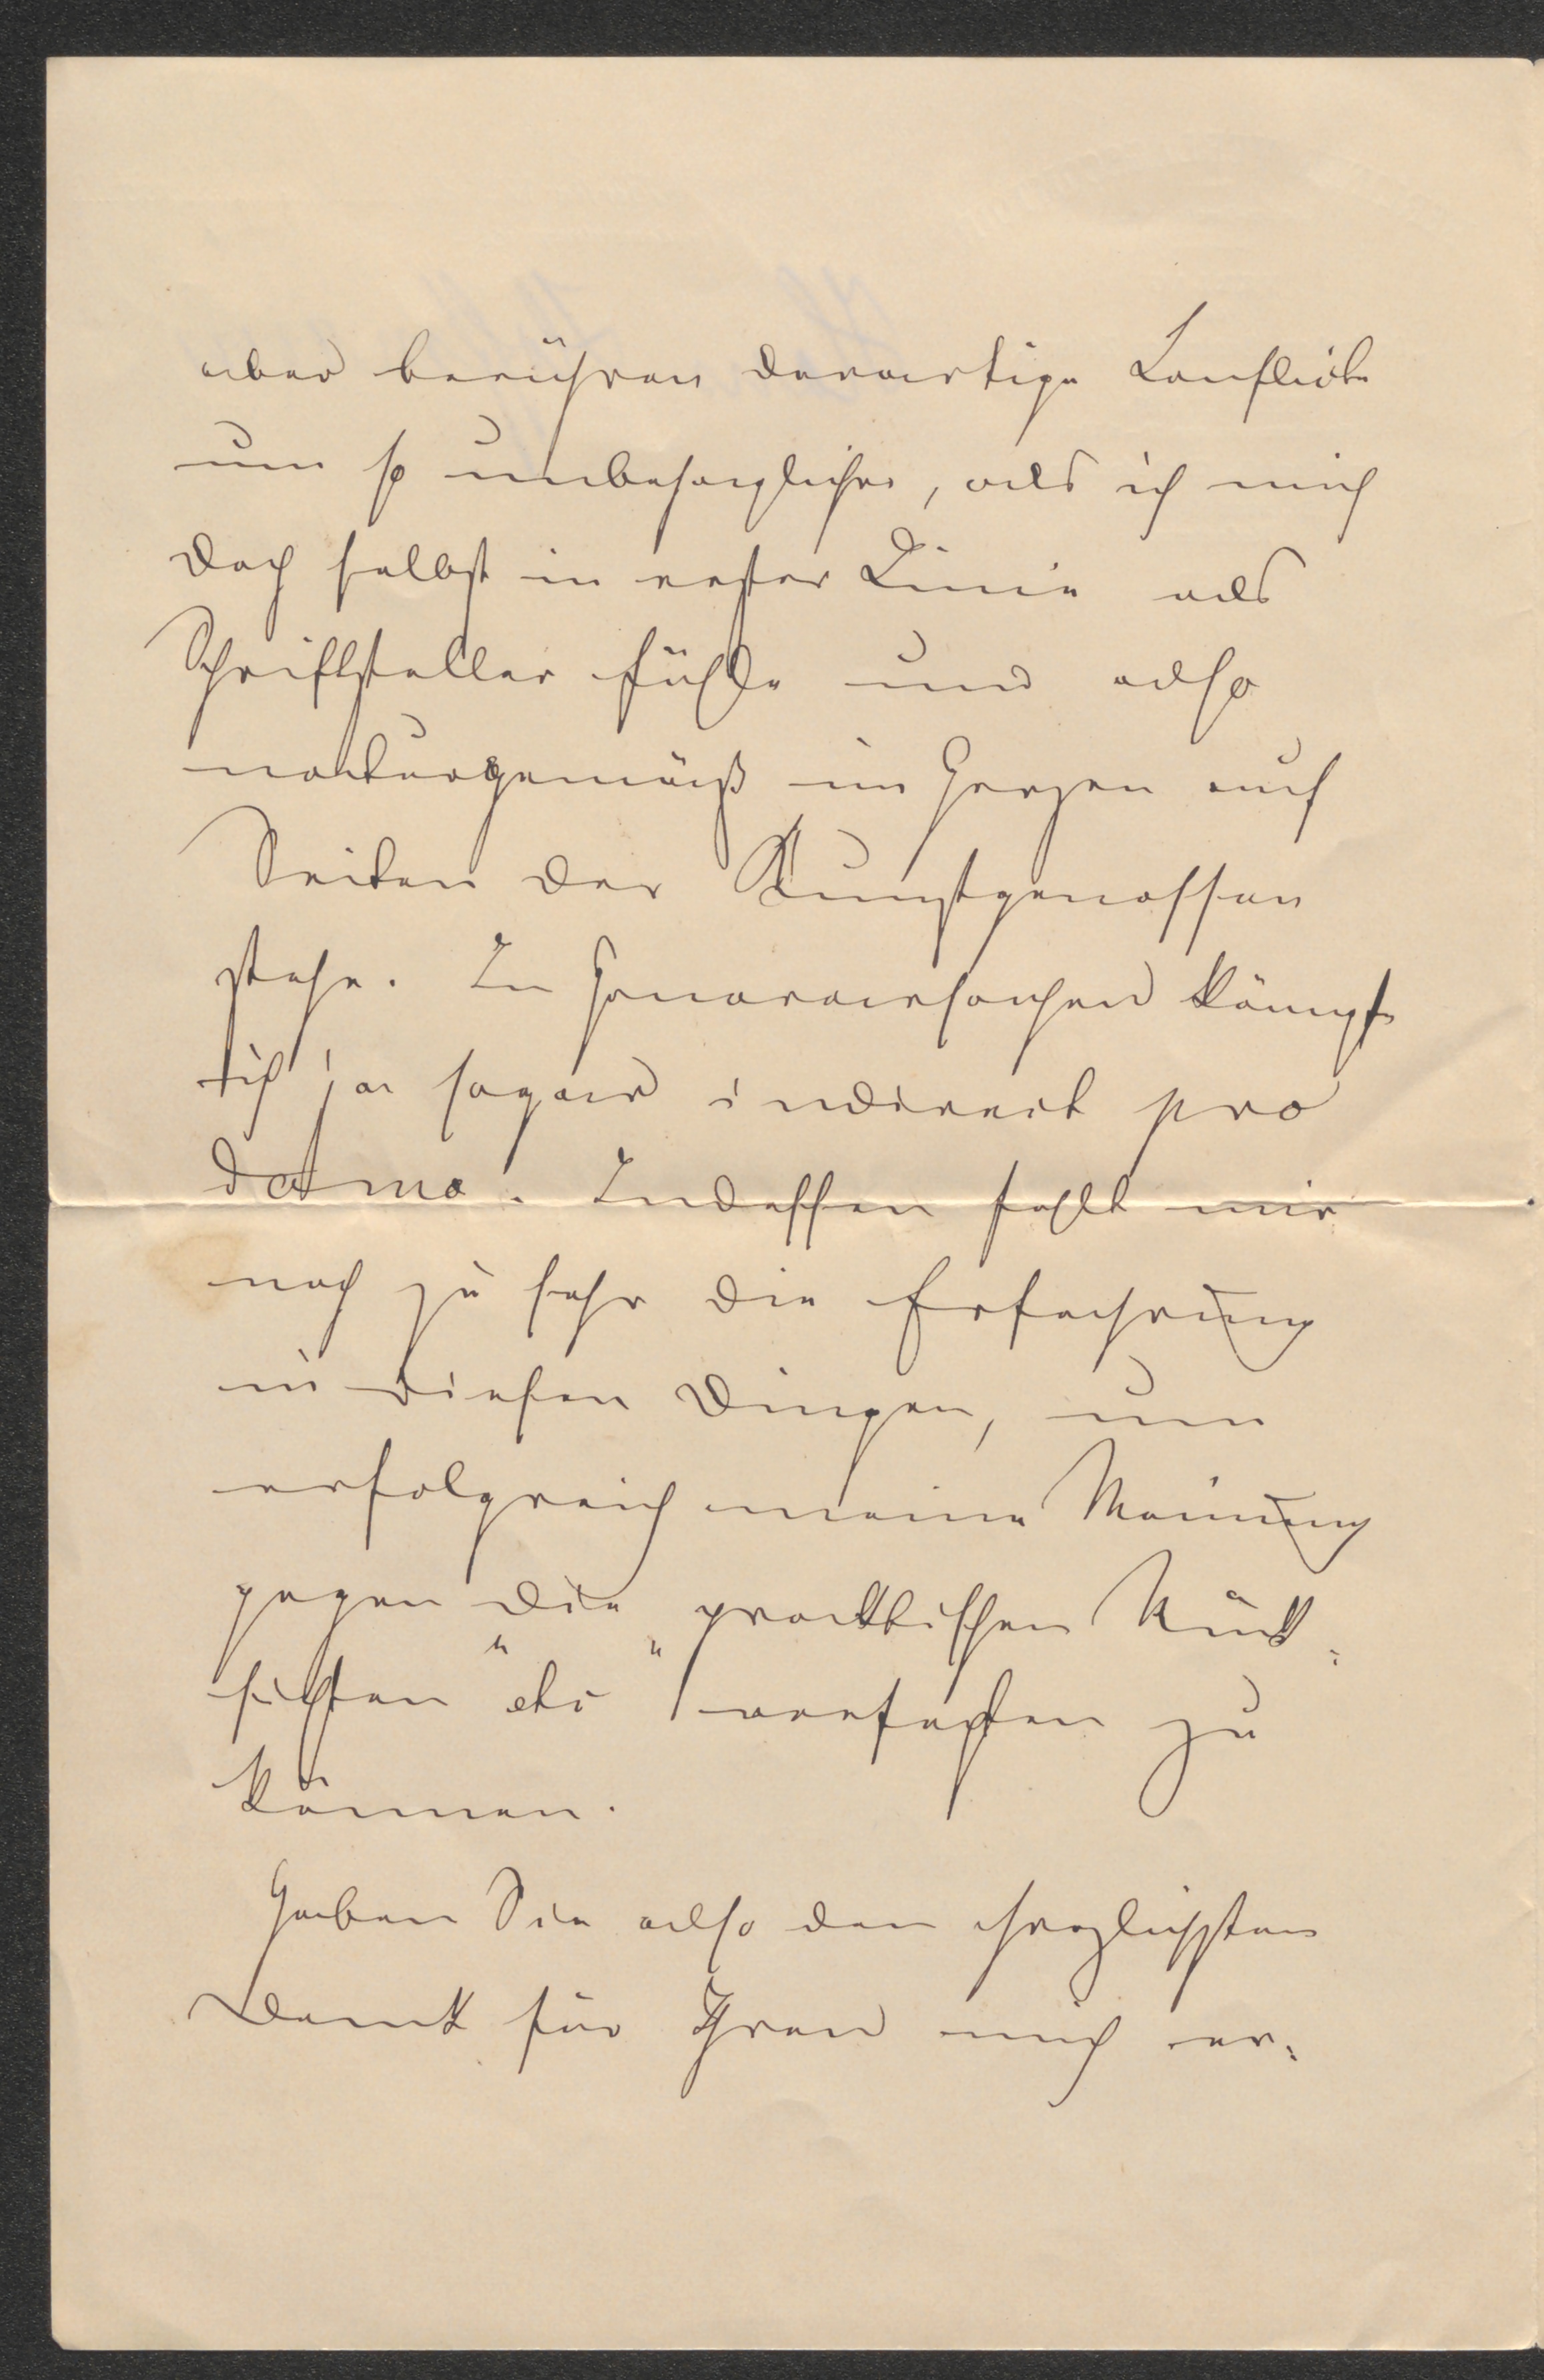 aber berühren derartige Conflicte
um so unbehaglicher, als ich mich
doch selbst in erster Linie als
Schriftsteller fühle und also
naturgemäß im Herzen auf
Seiten der Kunstgenossen
stehe. In Honorarsachen kämpfe
ich ja sogar indirect pro
domo. Indessen fehlt mir
noch zu sehr die Erfahrung
in diesen Dingen, um
erfolgreich meine Meinung
gegen die „practischen Rück-
sichten“ etc verfechten zu
können.
Haben Sie also den herzlichsten
Dank für Ihren mich er-